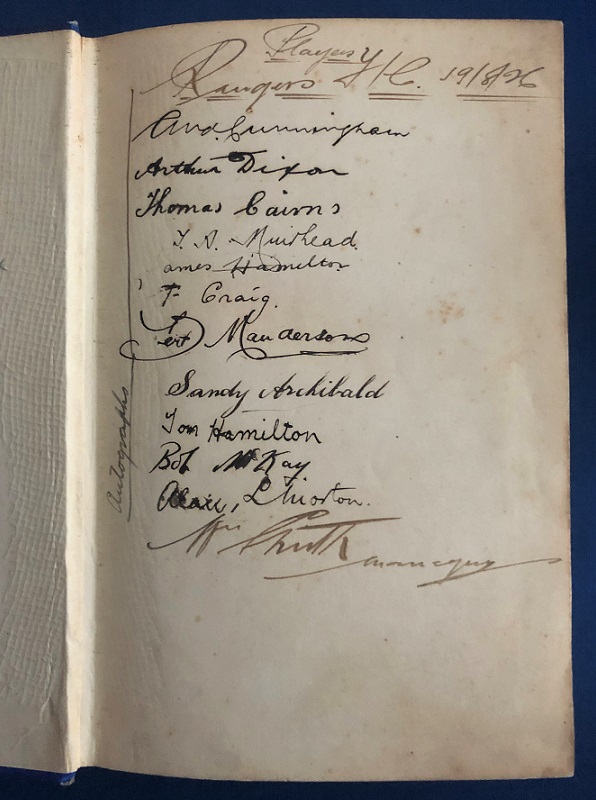 Players
Rangers F/C. 19/8/26
And. Cunningham
Arthur Dixon
Thomas Cairns
T. A. Muirhead.
ames Hamilton
T. Craig.
ert Manderson
Sandy Archibald
Tom Hamilton
Bob McKay
Alan, L Morton.
Wm Struth
manager
Autographs